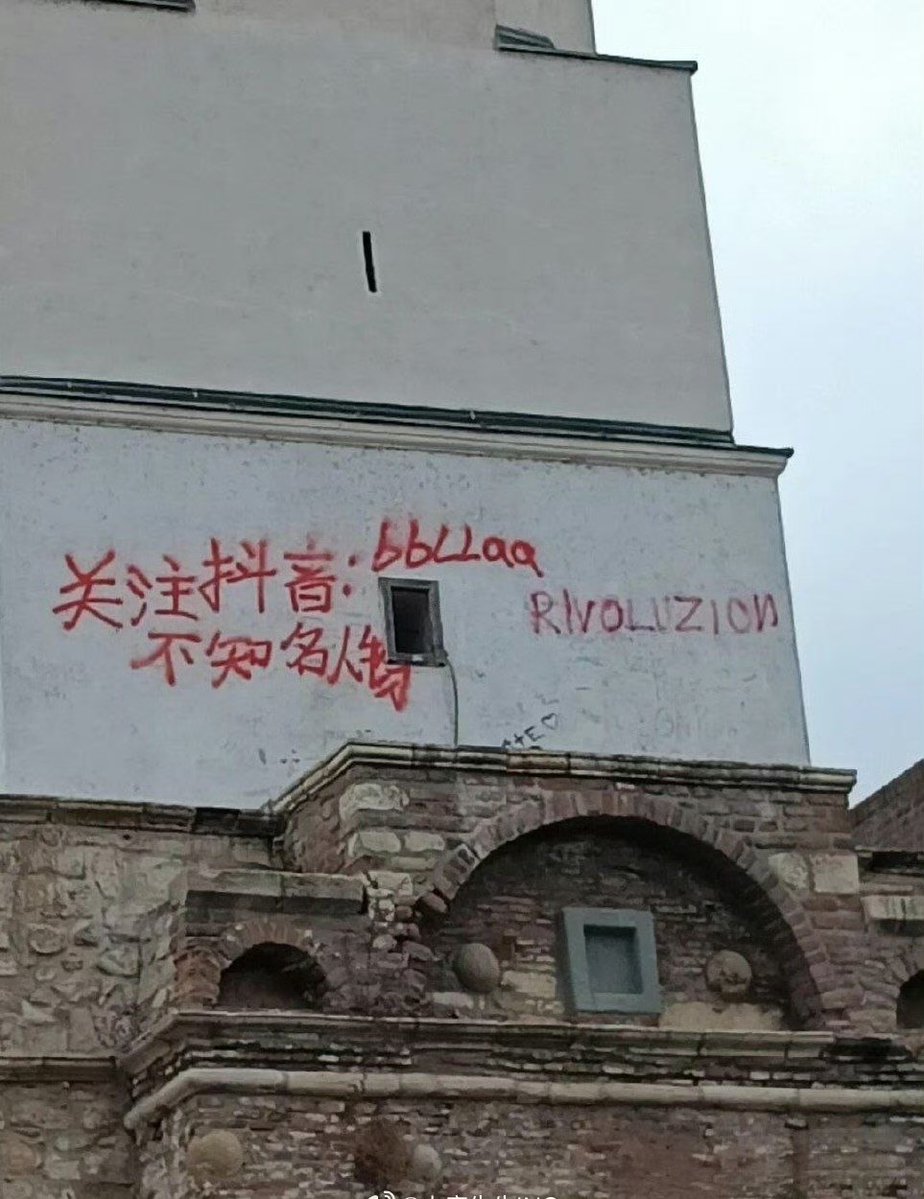 关注抖音:bbLLaa
不知名人
RIVOLUZION